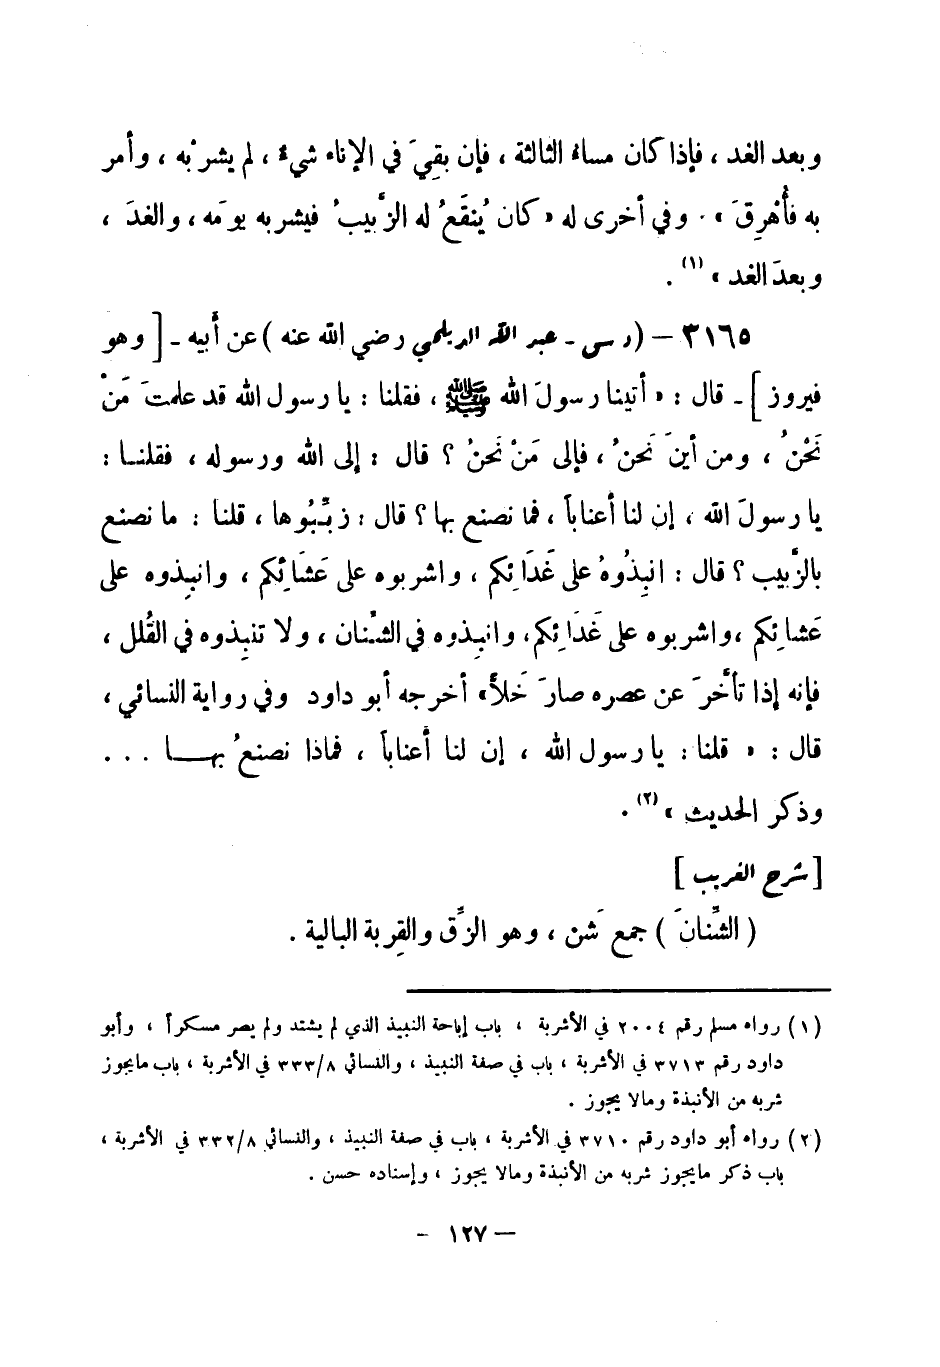 وبعد الغد ، فإذا كان مساءُ الثالثة ، فإن بقيَ في الإناء شيءٌ ، لم يشرَبْه ، وأمر
به فأُهْرِقَ » . وفي أخرى له « كان يُنقَعُ له الزَّبيبُ فيشربه يومَه ، والغدَ ،
وبعدَ الغد » (١) .
٣١٦٥ – ( د س - عبد الله الديلمي رضي الله عنه ) عن أبيه - [ وهو
فيروز ] - قال : « أتينا رسولَ الله ﷺ ، فقلنا : يا رسول الله قد علمتَ مَنْ
نَحْنُ ، ومن أينَ نَحنُ ، فإلى مَنْ نَحنُ ؟ قال : إلى الله ورسوله ، فقلنا :
يا رسولَ الله ، إن لنا أعناباً ، فما نصنع بها ؟ قال : زبِّبُوها ، قلنا : ما نصنع
بالزَّبيب ؟ قال : انبِذُوهُ على غَدَائِكم ، واشربوه على عَشَائِكم ، وانبِذوه على
عَشائِكم ، واشربوه على غَدَائِكم ، وانبِذوه في الشِّنان ، ولا تنبِذوه في القُلل ،
فإنه إذا تأخَّرَ عن عصره صارَ خَلاًّ » أخرجه أبو داود وفي رواية النسائي ،
قال : « قلنا : يا رسول الله ، إن لنا أعناباً ، فماذا نصنعُ بهـا ...
وذكر الحديث » (٢) .
[ شرح الغريب ]
( الشِّنانَ ) جمع شَن ، وهو الزِّق والقِربة البالية .
(١) رواه مسلم رقم ٢٠٠٤ في الأشربة ، باب إباحة النبيذ الذي لم يشتد ولم يصر مسكراً ، وأبو
داود رقم ٣٧١٣ في الأشربة ، باب في صفة النبيذ ، والنسائي ٣٣٣/٨ في الأشربة ، باب مايجوز
شربه من الأنبذة ومالا يجوز .
(٢) رواه أبو داود رقم ٣٧١٠ في الأشربة ، باب في صفة النبيذ ، والنسائي ٣٣٢/٨ في الأشربة ،
باب ذكر مايجوز شربه من الأنبذة ومالا يجوز ، وإسناده حسن .
– ١٢٧ -